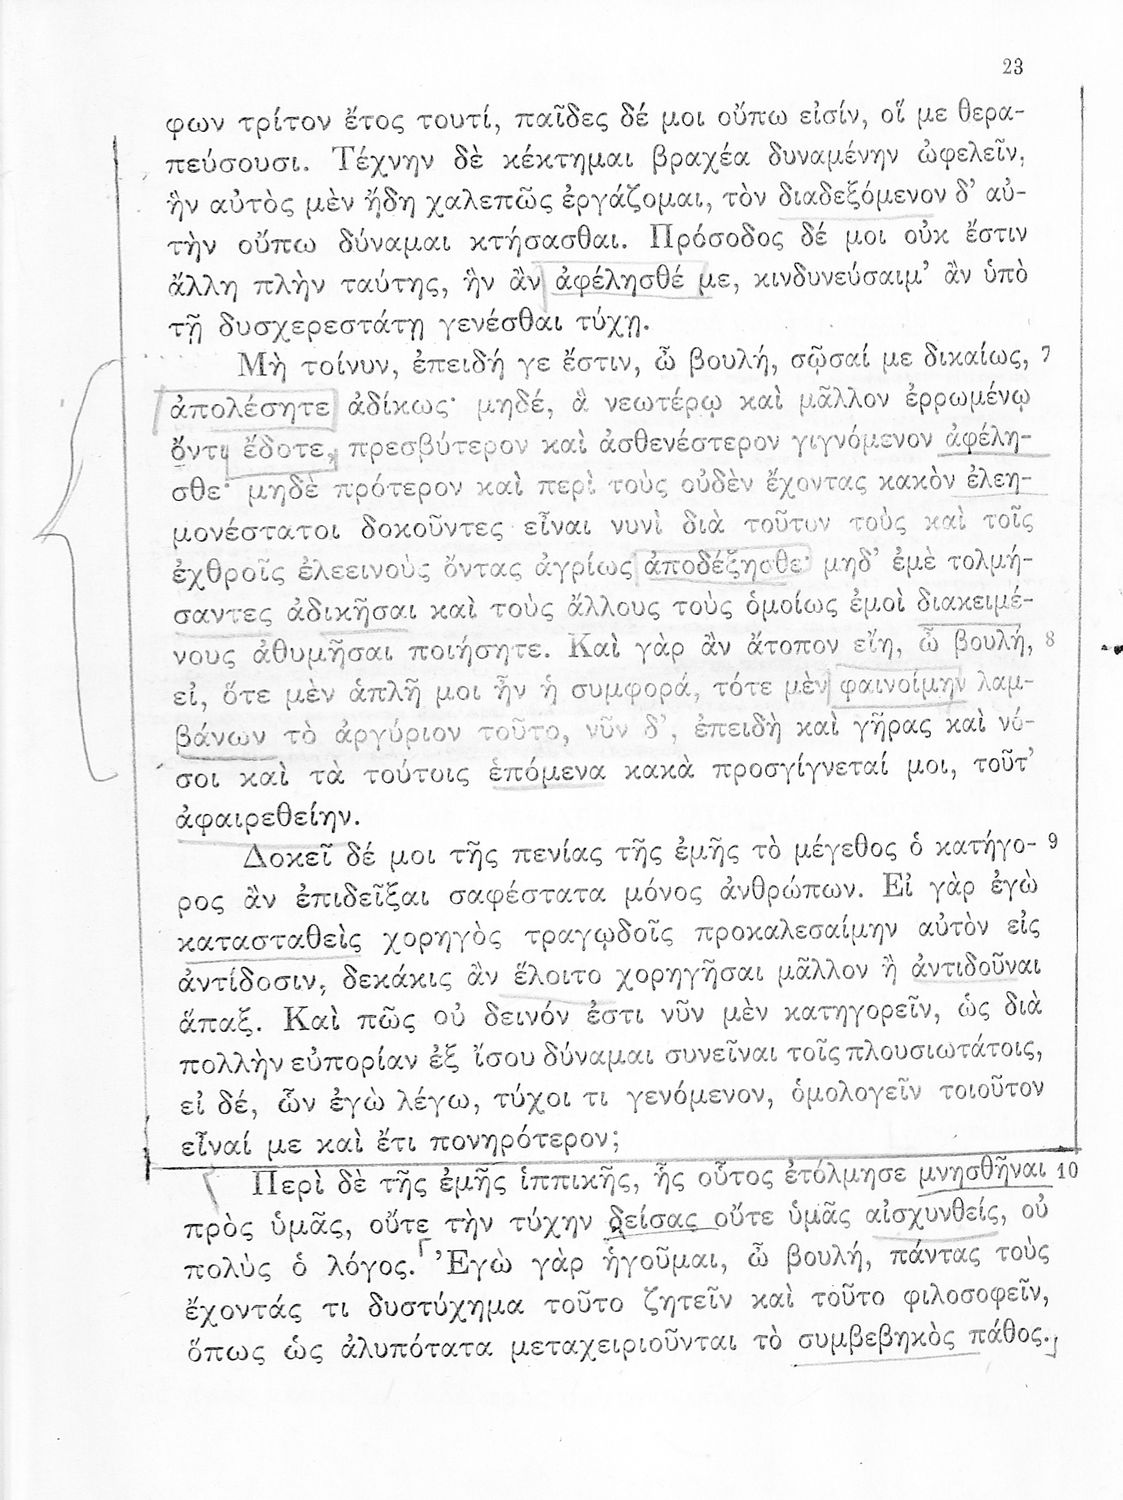 23
φων τρίτον ἔτος τουτί, παῖδες δέ μοι οὔπω εἰσίν, οἵ με θερα-
πεύσουσι. Τέχνην δὲ κέκτημαι βραχέα δυναμένην ὠφελεῖν,
ἣν αὐτὸς μὲν ἤδη χαλεπῶς ἐργάζομαι, τὸν διαδεξόμενον δ’ αὐ-
τὴν οὔπω δύναμαι κτήσασθαι. Πρόσοδος δέ μοι οὐκ ἔστιν
ἄλλη πλὴν ταύτης, ἣν ἂν ἀφέλησθέ με, κινδυνεύσαιμ’ ἂν ὑπὸ
τῇ δυσχερεστάτῃ γενέσθαι τύχῃ.
Μὴ τοίνυν, ἐπειδή γε ἔστιν, ὦ βουλή, σῷσαί με δικαίως, 7
ἀπολέσητε ἀδίκως· μηδέ, ἃ νεωτέρῳ καὶ μᾶλλον ἐρρωμένῳ
ὄντι ἔδοτε, πρεσβύτερον καὶ ἀσθενέστερον γιγνόμενον ἀφέλη-
σθε· μηδὲ πρότερον καὶ περὶ τοὺς οὐδὲν ἔχοντας κακὸν ἐλεη-
μονέστατοι δοκοῦντες εἶναι νυνὶ διὰ τοῦτον τοὺς καὶ τοῖς
ἐχθροῖς ἐλεεινοὺς ὄντας ἀγρίως ἀποδέξησθε· μηδ’ ἐμὲ τολμή-
σαντες ἀδικῆσαι καὶ τοὺς ἄλλους τοὺς ὁμοίως ἐμοὶ διακειμέ-
νους ἀθυμῆσαι ποιήσητε. Καὶ γὰρ ἂν ἄτοπον εἴη, ὦ βουλή, 8
εἰ, ὅτε μὲν ἁπλῆ μοι ἦν ἡ συμφορά, τότε μὲν φαινοίμην λαμ-
βάνων τὸ ἀργύριον τοῦτο, νῦν δ’, ἐπειδὴ καὶ γῆρας καὶ νό-
σοι καὶ τὰ τούτοις ἑπόμενα κακὰ προσγίγνεταί μοι, τοῦτ’
ἀφαιρεθείην.
Δοκεῖ δέ μοι τῆς πενίας τῆς ἐμῆς τὸ μέγεθος ὁ κατήγο- 9
ρος ἂν ἐπιδεῖξαι σαφέστατα μόνος ἀνθρώπων. Εἰ γὰρ ἐγὼ
κατασταθεὶς χορηγὸς τραγῳδοῖς προκαλεσαίμην αὐτὸν εἰς
ἀντίδοσιν, δεκάκις ἂν ἕλοιτο χορηγῆσαι μᾶλλον ἢ ἀντιδοῦναι
ἅπαξ. Καὶ πῶς οὐ δεινόν ἐστι νῦν μὲν κατηγορεῖν, ὡς διὰ
πολλὴν εὐπορίαν ἐξ ἴσου δύναμαι συνεῖναι τοῖς πλουσιωτάτοις,
εἰ δέ, ὧν ἐγὼ λέγω, τύχοι τι γενόμενον, ὁμολογεῖν τοιοῦτον
εἶναί με καὶ ἔτι πονηρότερον;
Περὶ δὲ τῆς ἐμῆς ἱππικῆς, ἧς οὗτος ἐτόλμησε μνησθῆναι 10
πρὸς ὑμᾶς, οὔτε τὴν τύχην δείσας οὔτε ὑμᾶς αἰσχυνθείς, οὐ
πολὺς ὁ λόγος. Ἐγὼ γὰρ ἡγοῦμαι, ὦ βουλή, πάντας τοὺς
ἔχοντάς τι δυστύχημα τοῦτο ζητεῖν καὶ τοῦτο φιλοσοφεῖν,
ὅπως ὡς ἀλυπότατα μεταχειριοῦνται τὸ συμβεβηκὸς πάθος.